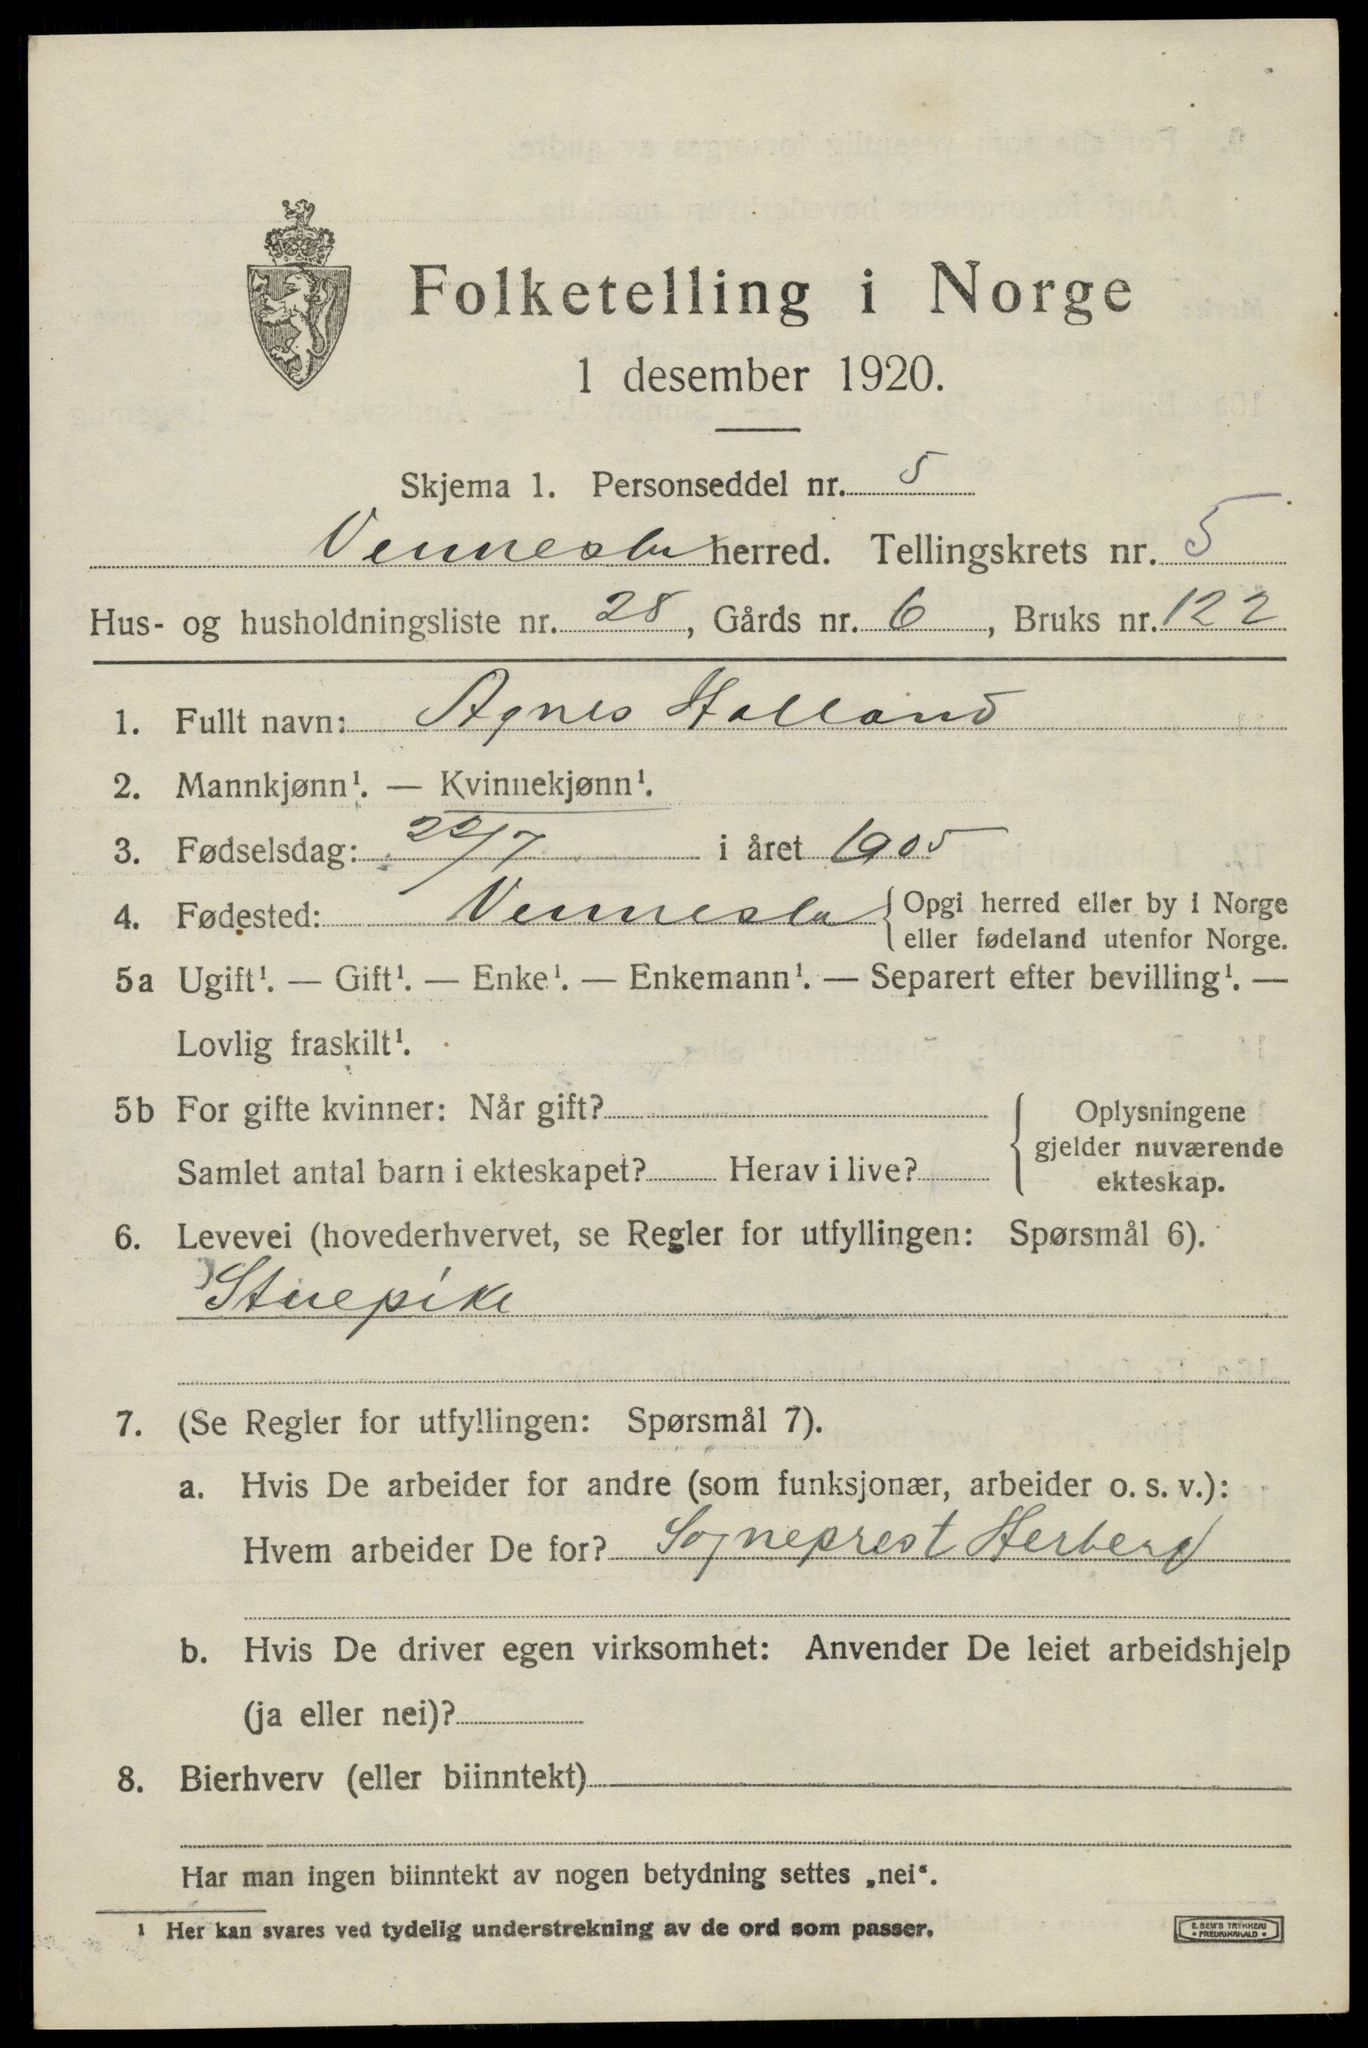 Folketelling i Norge
1 desember 1920.
Skjema 1. Personseddel nr. 5
Vennesla herred. Tellingskrets nr. 5
Hus- og husholdningsliste nr. 28, Gårds nr. 6, Bruks nr. 122
1. Fullt navn: Agnes Halland
2. Mannkjønn¹. — Kvinnekjønn¹.
3. Fødselsdag: 22/7 i året 1905
4. Fødested: Vennesla { Opgi herred eller by i Norge
eller fødeland utenfor Norge.
5a Ugift¹. — Gift¹. — Enke¹. — Enkemann¹. — Separert efter bevilling¹. —
Lovlig fraskilt¹.
5b For gifte kvinner: Når gift?
Samlet antal barn i ekteskapet? Herav i live?
{ Oplysningene
gjelder nuværende
ekteskap.
6. Levevei (hovederhvervet, se Regler for utfyllingen: Spørsmål 6).
Stuepike
7. (Se Regler for utfyllingen: Spørsmål 7).
a. Hvis De arbeider for andre (som funksjonær, arbeider o. s. v.):
Hvem arbeider De for? Sogneprest
b. Hvis De driver egen virksomhet: Anvender De leiet arbeidshjelp
(ja eller nei)?
8. Bierhverv (eller biinntekt)
Har man ingen biinntekt av nogen betydning settes „nei“.
¹ Her kan svares ved tydelig understrekning av de ord som passer.
E. SEM'S TRYKKERI
FREDRIKSHALD